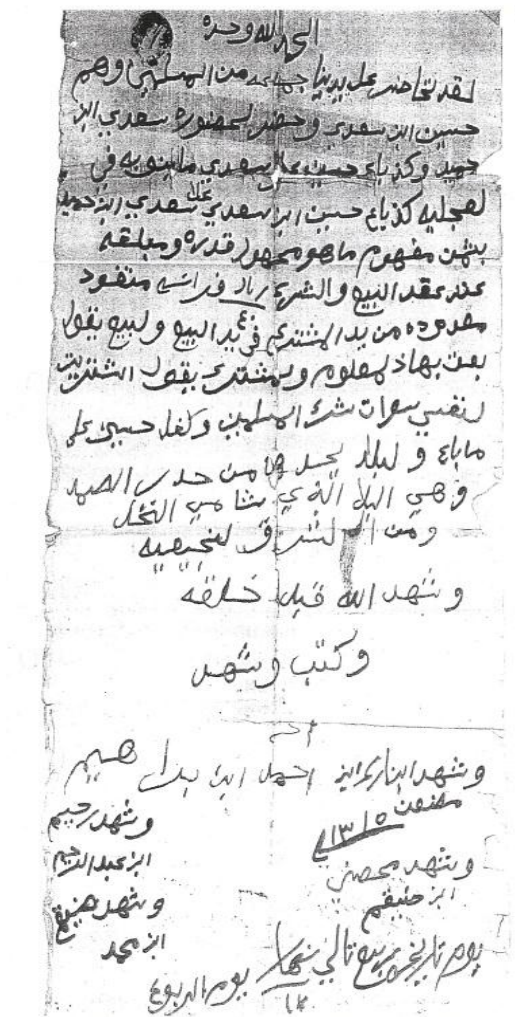 الحمد لله وحده
لقد تحاضر على يدينا جماعه من المسلمين وهم
حسين ابن سعدي وحضر لحضوره سعدي ابن
حميد وكذ باع حسين على سعدي ما ينوبه في
لعجليه كذ باع حسين ابن سعدي على سعدي ابن حميد
بثمن مفهوم ما هو مجهول قدره ومبلقه
عند عقد البيع والشره ريال فرانسه منقود
مقدوده من يد المشتري في يد البيع ولبيع يقول
بعت بهاذ لمعلوم ولمشتري يقول اشتريت
لنفسي سوات شرى المسلمين وكفل حسين على
ما باع ولبلاد يحدها من حدر الصمد
وهي البلاد الذي شامي النخل
ومن الشرق لنجيميه
وشهد الله قبل خلقه
وكتب وشهد
وشهد ابن احمد ابن
١٣١٥
وشهد رحيم
ابن عبد الرحيم
وشهد محصني
ابن
وشهد
ابن محمد
يوم تاريخ ربيع تالي يوم الربوع
١٢